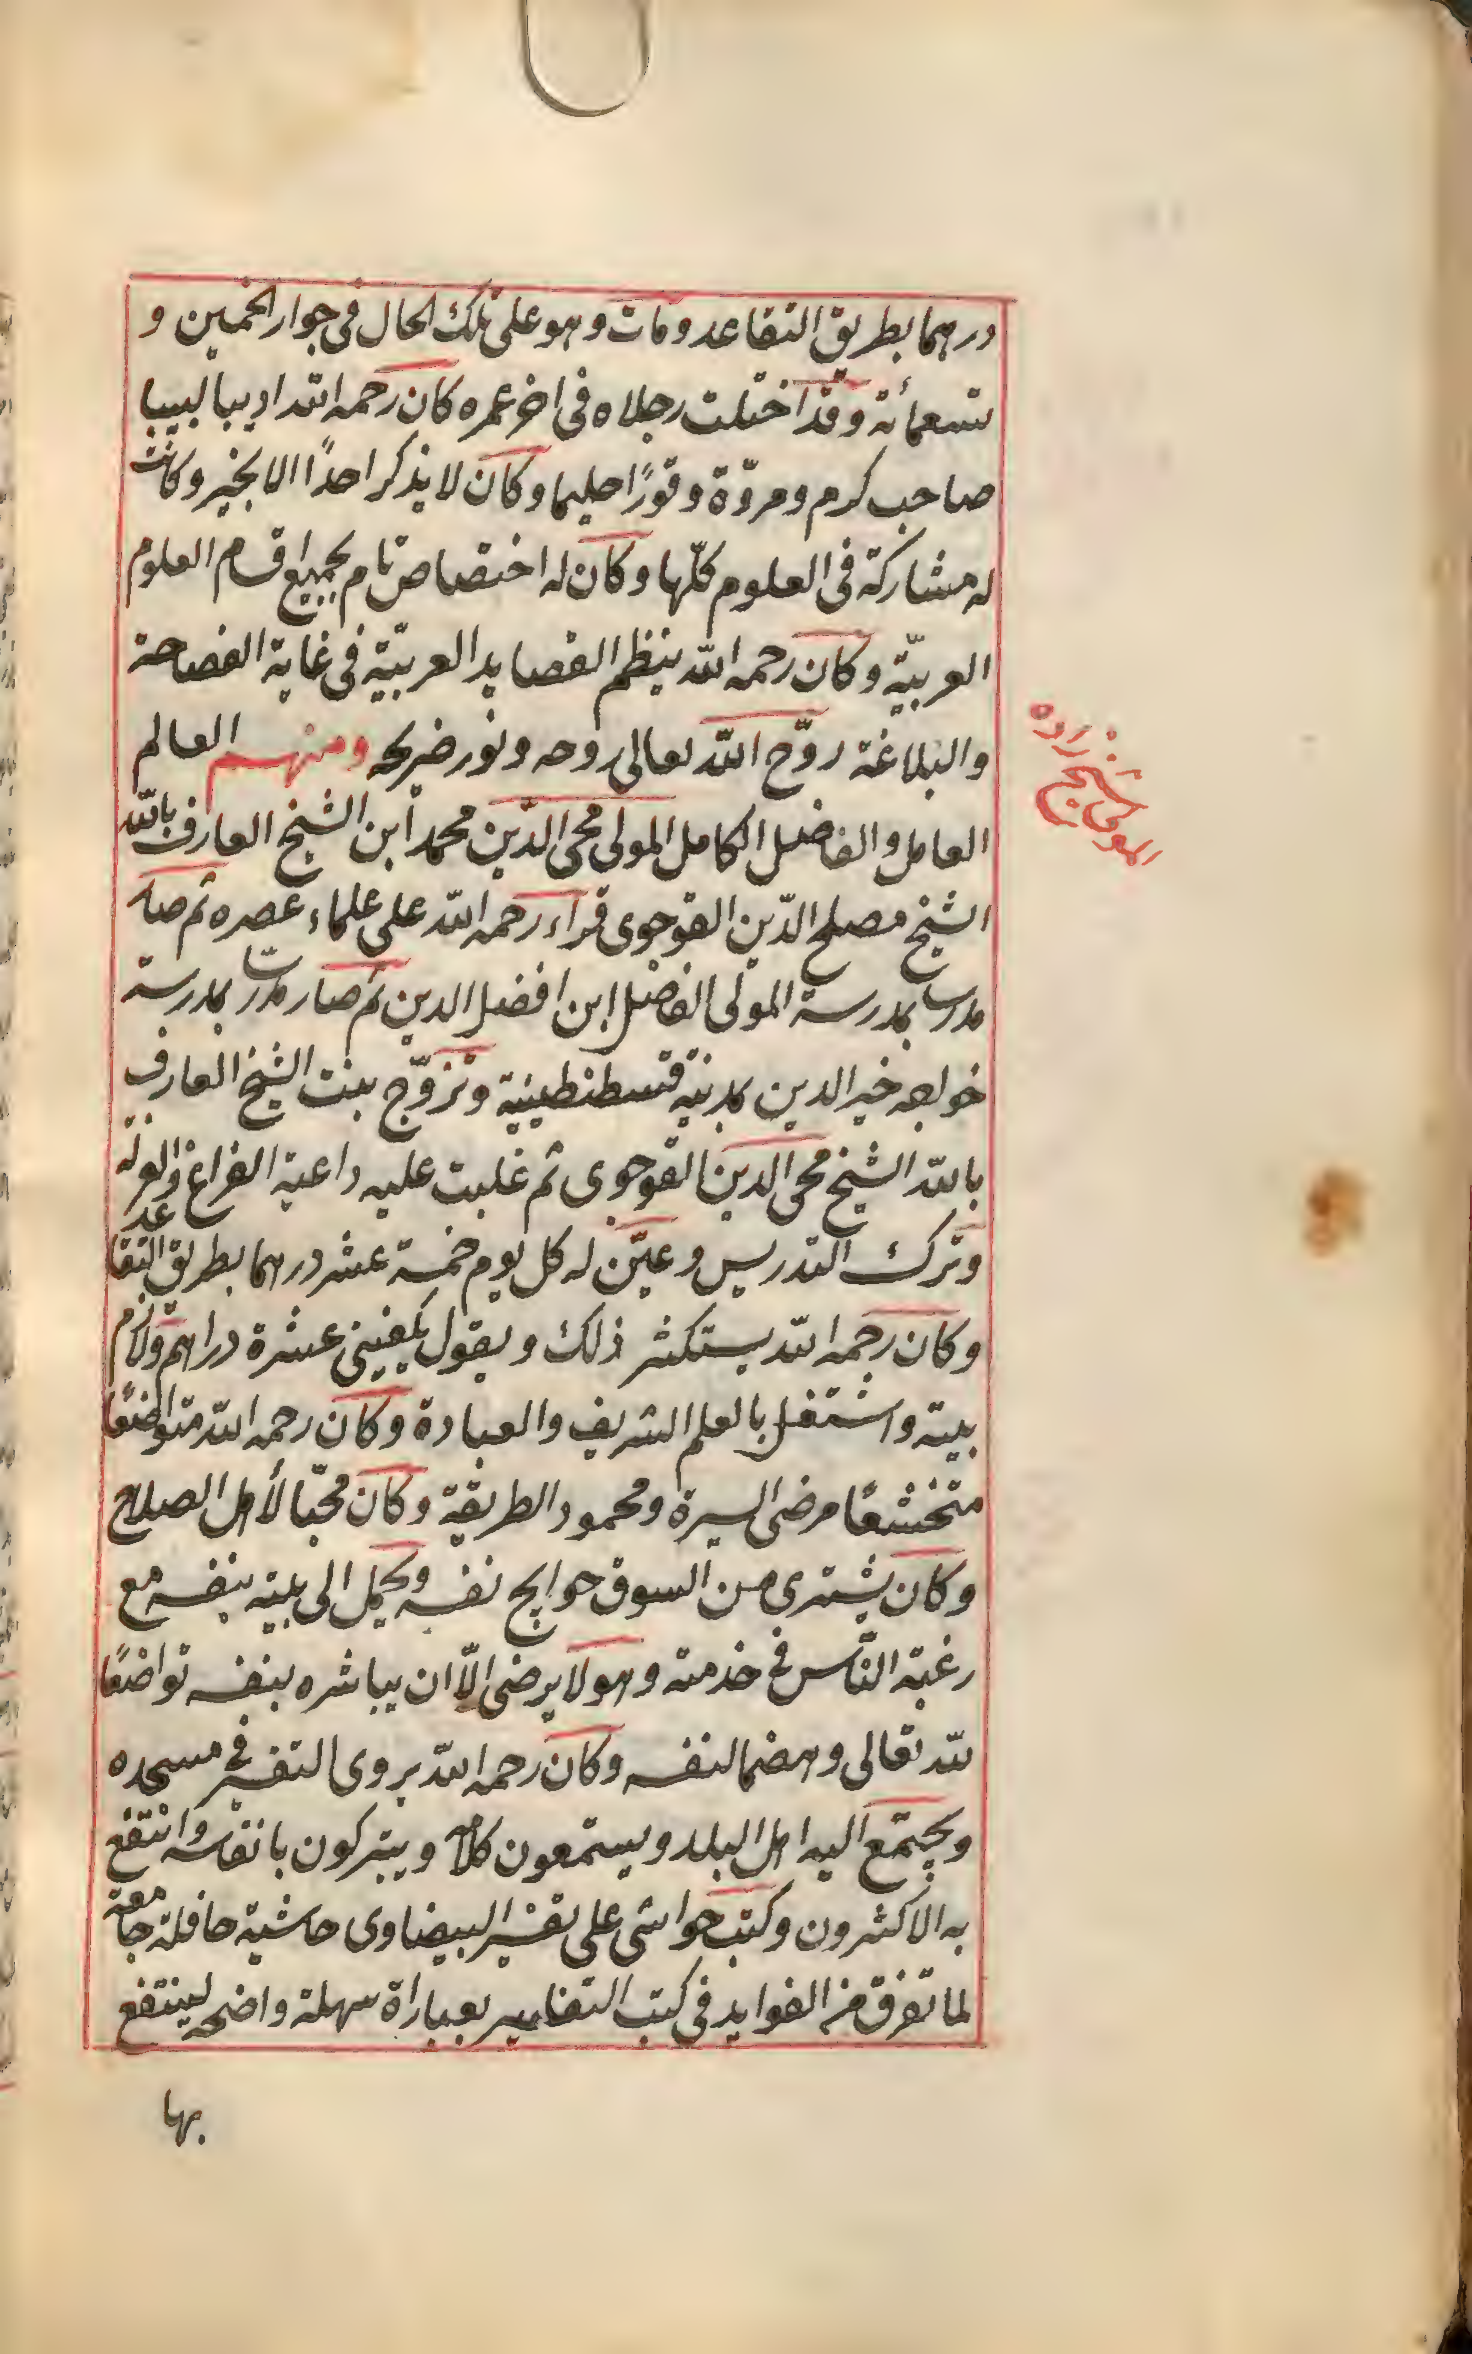 درهما بطريق التقاعد ومات وهو على تلك الحال فى جوار الخمسين و
تسعمائة وقد اختلت رجلاه فى اخر عمره كان رحمه الله اديبا لبيبا
صاحب كرم ومروّة وقورًا حليما وكان لا يذكر احدًا الا بخير وكانت
له مشاركة فى العلوم كلّها وكان له اختصاص تام بجميع اقسام العلوم
العربيّة وكان رحمه الله ينظم القصايد العربيّة فى غاية الفصاحة
والبلاغة روّح الله تعالى روحه ونور ضريحه ومنهم العالم
المولى شيخ زاده
العامل والفاضل الكامل المولى محى الدّين محمد ابن الشيخ العارف بالله
الشيخ مصلح الدّين القوجوى قراء رحمه الله على علماء عصره ثم صار
مدرسا بمدرسة المولى الفاضل ابن افضل الدين ثم صار مدرسا بمدرسة
خواجه خير الدين بمدينة قسطنطينية وتزوّج بنت الشيخ العارف
بالله الشيخ محى الدين القوجوى ثم غلبت عليه داعية الفراغ والعزلة
وترك التدريس وعيّن له كل يوم خمسة عشر درهما بطريق التقاعد
وكان رحمه الله يستكثر ذلك ويقول يكفينى عشرة دراهم ولازم
بيته واشتغل بالعلم الشريف والعبادة وكان رحمه الله متواضعًا
متخشعًا مرضى السيرة ومحمود الطريقة وكان محبّا لأهل الصلاح
وكان يشترى من السوق حوايج نفسه ويحمل الى بيته بنفسه مع
رغبة الناس فى خدمته وهو لا يرضى الّا ان يباشره بنفسه تواضعًا
لله تعالى وهضما لنفسه وكان رحمه الله يروى التفسير فى مسجده
ويجتمع اليه اهل البلد ويستمعون كلامه ويتبركون بانفاسه وانتفع
به الاكثرون وكتب حواشى على تفسير البيضاوى حاشية حافلة جامعة
لما تفرق من الفوايد فى كتب التفاسير بعباراة سهلة واضحه لينتفع
بها